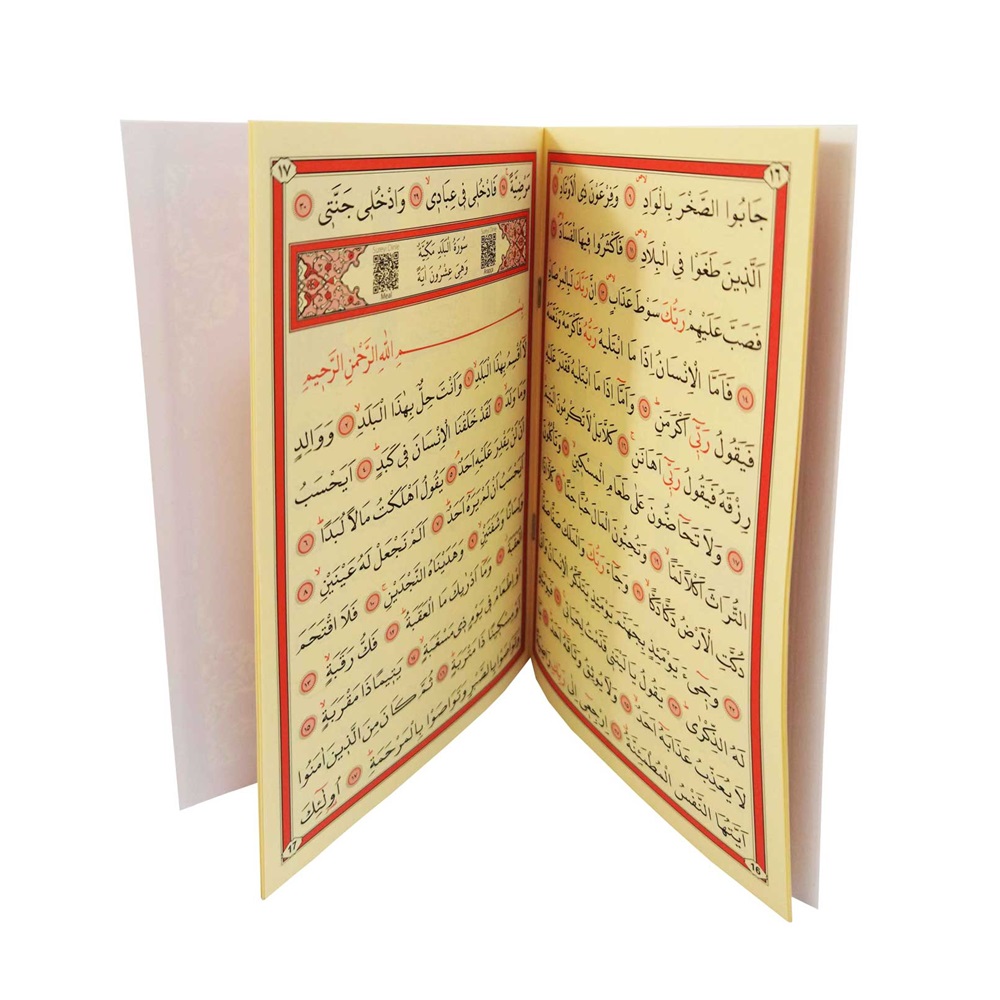 ١٦
جَابُوا الصَّخْرَ بِالْوَادِۙ ٩ وَفِرْعَوْنَ ذِى الْاَوْتَادِۙ ١٠
اَلَّذ۪ينَ طَغَوْا فِى الْبِلَادِۙ ١١ فَاَكْثَرُوا ف۪يهَا الْفَسَادَۙ ١٢
فَصَبَّ عَلَيْهِمْ رَبُّكَ سَوْطَ عَذَابٍۚ ١٣ اِنَّ رَبَّكَ لَبِالْمِرْصَادِۜ
١٤ فَاَمَّا الْاِنْسَانُ اِذَا مَا ابْتَلٰيهُ رَبُّهُ فَاَكْرَمَهُ وَنَعَّمَهُ
فَيَقُولُ رَبّ۪ٓى اَكْرَمَنِۜ ١٥ وَاَمَّٓا اِذَا مَا ابْتَلٰيهُ فَقَدَرَ عَلَيْهِ
رِزْقَهُ فَيَقُولُ رَبّ۪ٓى اَهَانَنِۚ ١٦ كَلَّا بَلْ لَا تُكْرِمُونَ الْيَت۪يمَۙ
١٧ وَلَا تَحَٓاضُّونَ عَلٰى طَعَامِ الْمِسْك۪ينِۙ ١٨ وَتَأْكُلُونَ
التُّرَاثَ اَكْلاً لَمًّاۙ ١٩ وَتُحِبُّونَ الْمَالَ حُبًّا جَمًّاۜ ٢٠ كَلَّٓا اِذَا
دُكَّتِ الْاَرْضُ دَكًّا دَكًّاۙ ٢١ وَجَٓاءَ رَبُّكَ وَالْمَلَكُ صَفًّا صَفًّاۚ
٢٢ وَج۪ٓىءَ يَوْمَئِذٍ بِجَهَنَّمَ يَوْمَئِذٍ يَتَذَكَّرُ الْاِنْسَانُ وَاَنّٰى
لَهُ الذِّكْرٰىۜ ٢٣ يَقُولُ يَا لَيْتَن۪ى قَدَّمْتُ لِحَيَات۪ىۚ ٢٤ فَيَوْمَئِذٍ
لَا يُعَذِّبُ عَذَابَهُٓ اَحَدٌۙ ٢٥ وَلَا يُوثِقُ وَثَاقَهُٓ اَحَدٌۜ ٢٦
اَيَّتُهَا النَّفْسُ الْمُطْمَئِنَّةُۗ ٢٧ اِرْجِع۪ٓى اِلٰى رَبِّكِ
16
١٧
مَرْضِيَّةًۚ ٢٨ فَادْخُل۪ى ف۪ى عِبَاد۪ىۙ ٢٩ وَادْخُل۪ى جَنَّت۪ى ٣٠
سُورَةُ الْبَلَدِ مَكِّيَّةٌ
وَهِىَ عِشْرُونَ اٰيَةً
Meal
بِسْمِ اللّٰهِ الرَّحْمٰنِ الرَّح۪يمِ
لَٓا اُقْسِمُ بِهٰذَا الْبَلَدِۙ ١ وَاَنْتَ حِلٌّ بِهٰذَا الْبَلَدِۙ ٢ وَوَالِدٍ
وَمَا وَلَدَۙ ٣ لَقَدْ خَلَقْنَا الْاِنْسَانَ ف۪ى كَبَدٍۜ ٤ اَيَحْسَبُ
اَنْ لَنْ يَقْدِرَ عَلَيْهِ اَحَدٌۢ ٥ يَقُولُ اَهْلَكْتُ مَالاً لُبَدًاۜ ٦
اَيَحْسَبُ اَنْ لَمْ يَرَهُٓ اَحَدٌۜ ٧ اَلَمْ نَجْعَلْ لَهُ عَيْنَيْنِۙ ٨
وَلِسَانًا وَشَفَتَيْنِۙ ٩ وَهَدَيْنَاهُ النَّجْدَيْنِۚ ١٠ فَلَا اقْتَحَمَ
الْعَقَبَةَۘ ١١ وَمَٓا اَدْرٰيكَ مَا الْعَقَبَةُۜ ١٢ فَكُّ رَقَبَةٍۙ ١٣
اَوْ اِطْعَامٌ ف۪ى يَوْمٍ ذ۪ى مَسْغَبَةٍۙ ١٤ يَت۪يمًا ذَا مَقْرَبَةٍۙ ١٥
اَوْ مِسْك۪ينًا ذَا مَتْرَبَةٍۜ ١٦ ثُمَّ كَانَ مِنَ الَّذ۪ينَ اٰمَنُوا
وَتَوَاصَوْا بِالصَّبْرِ وَتَوَاصَوْا بِالْمَرْحَمَةِۜ ١٧ اُو۬لٰٓئِكَ
17